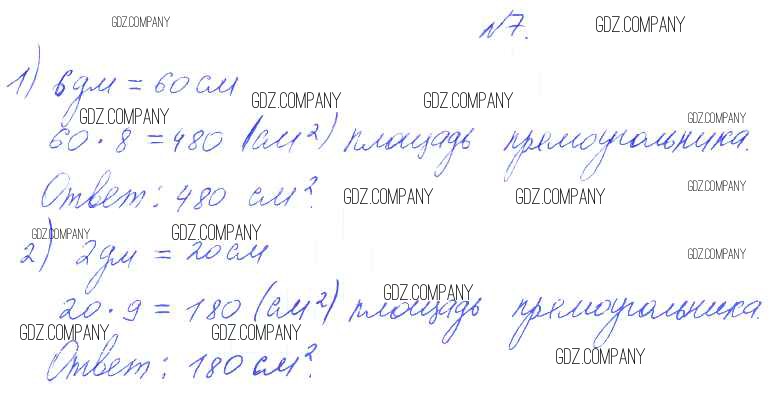 GDZ.COMPANY
№7. GDZ.COMPANY
1) 6дм = 60см
GDZ.COMPANY GDZ.COMPANY
GDZ.COMPANY GDZ.COMPANY
60 · 8 = 480 (см²) площадь прямоугольника.
GDZ.COMPANY
Ответ: 480 см². GDZ.COMPANY GDZ.COMPANY
GDZ.COMPANY GDZ.COMPANY
2) 2дм = 20см GDZ.COMPANY
GDZ.COMPANY
20 · 9 = 180 (см²) площадь прямоугольника.
GDZ.COMPANY GDZ.COMPANY
Ответ: 180 см². GDZ.COMPANY